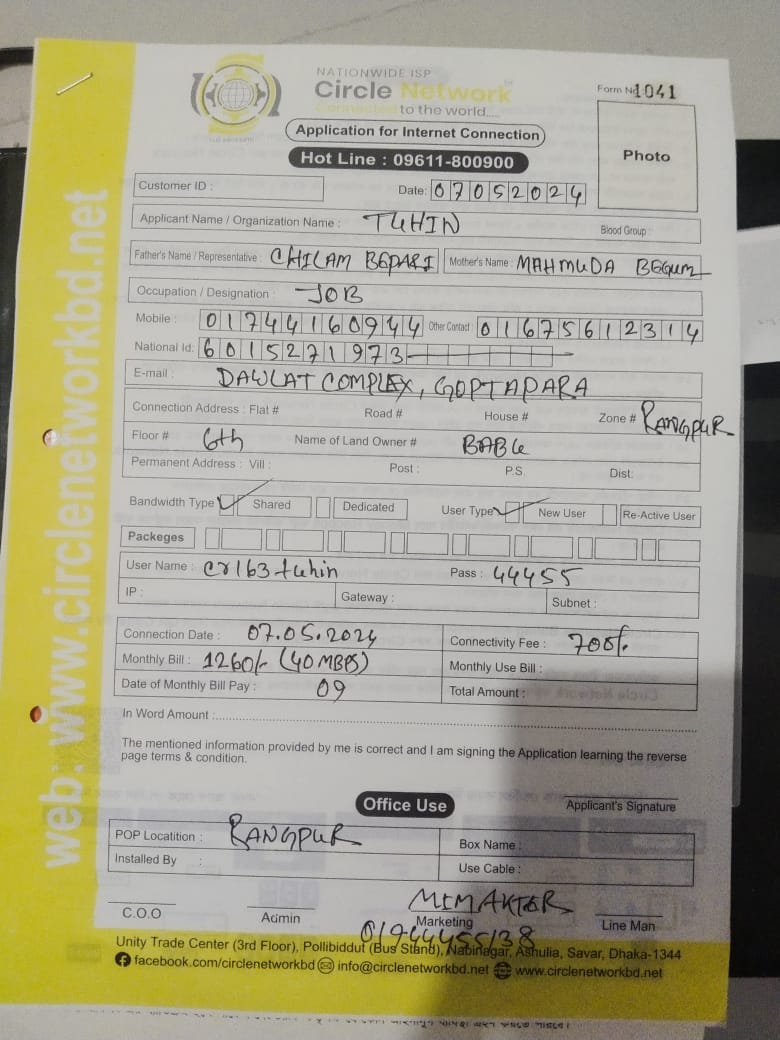 NATIONWIDE ISP
Circle Network
Connected to the world....
Form No 1041
Application for Internet Connection
Hot Line : 09611-800900
Photo
Customer ID :
Date: 07052024
Applicant Name / Organization Name : TUHIN
Blood Group :
Father's Name / Representative : CHILAM BEPARI Mother's Name : MAHMUDA BEGUM
Occupation / Designation : JOB
Mobile : 01744160944 Other Contact : 01675612314
National Id: 6015271973
E-mail : DAWLAT COMPLEX, GOPTAPARA
Connection Address : Flat # Road # House # Zone # RANGPUR
Floor # 6th Name of Land Owner # BABU
Permanent Address : Vill : Post : P.S. Dist:
Bandwidth Type ✓ Shared Dedicated User Type ✓ New User Re-Active User
Packeges
User Name : cr163tuhin Pass : 44455
IP : Gateway : Subnet :
Connection Date : 07.05.2024 Connectivity Fee : 700/-
Monthly Bill : 1260/- (40 MBPS) Monthly Use Bill :
Date of Monthly Bill Pay : 09 Total Amount :
In Word Amount :
The mentioned information provided by me is correct and I am signing the Application learning the reverse
page terms & condition.
Applicant's Signature
Office Use
POP Locatition : RANGPUR Box Name :
Installed By : Use Cable :
MIM AKTER
C.O.O Admin Marketing Line Man
01944455138
Unity Trade Center (3rd Floor), Pollibiddut (Bus Stand), Nabinagar, Ashulia, Savar, Dhaka-1344
facebook.com/circlenetworkbd info@circlenetworkbd.net www.circlenetworkbd.net
web: www.circlenetworkbd.net